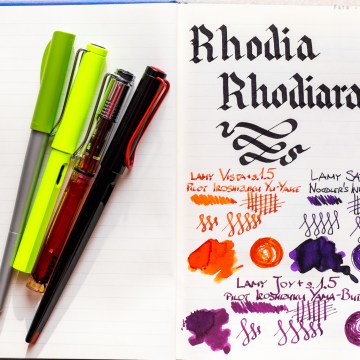 Rhodia
Rhodiara
LAMY VISTA + 1.5
PILOT IROSHIZUKU YU-YAKE
LAMY SA
NOODLER'S
LAMY JOY + 1.5
PILOT IROSHIZUKU YAMA-BU